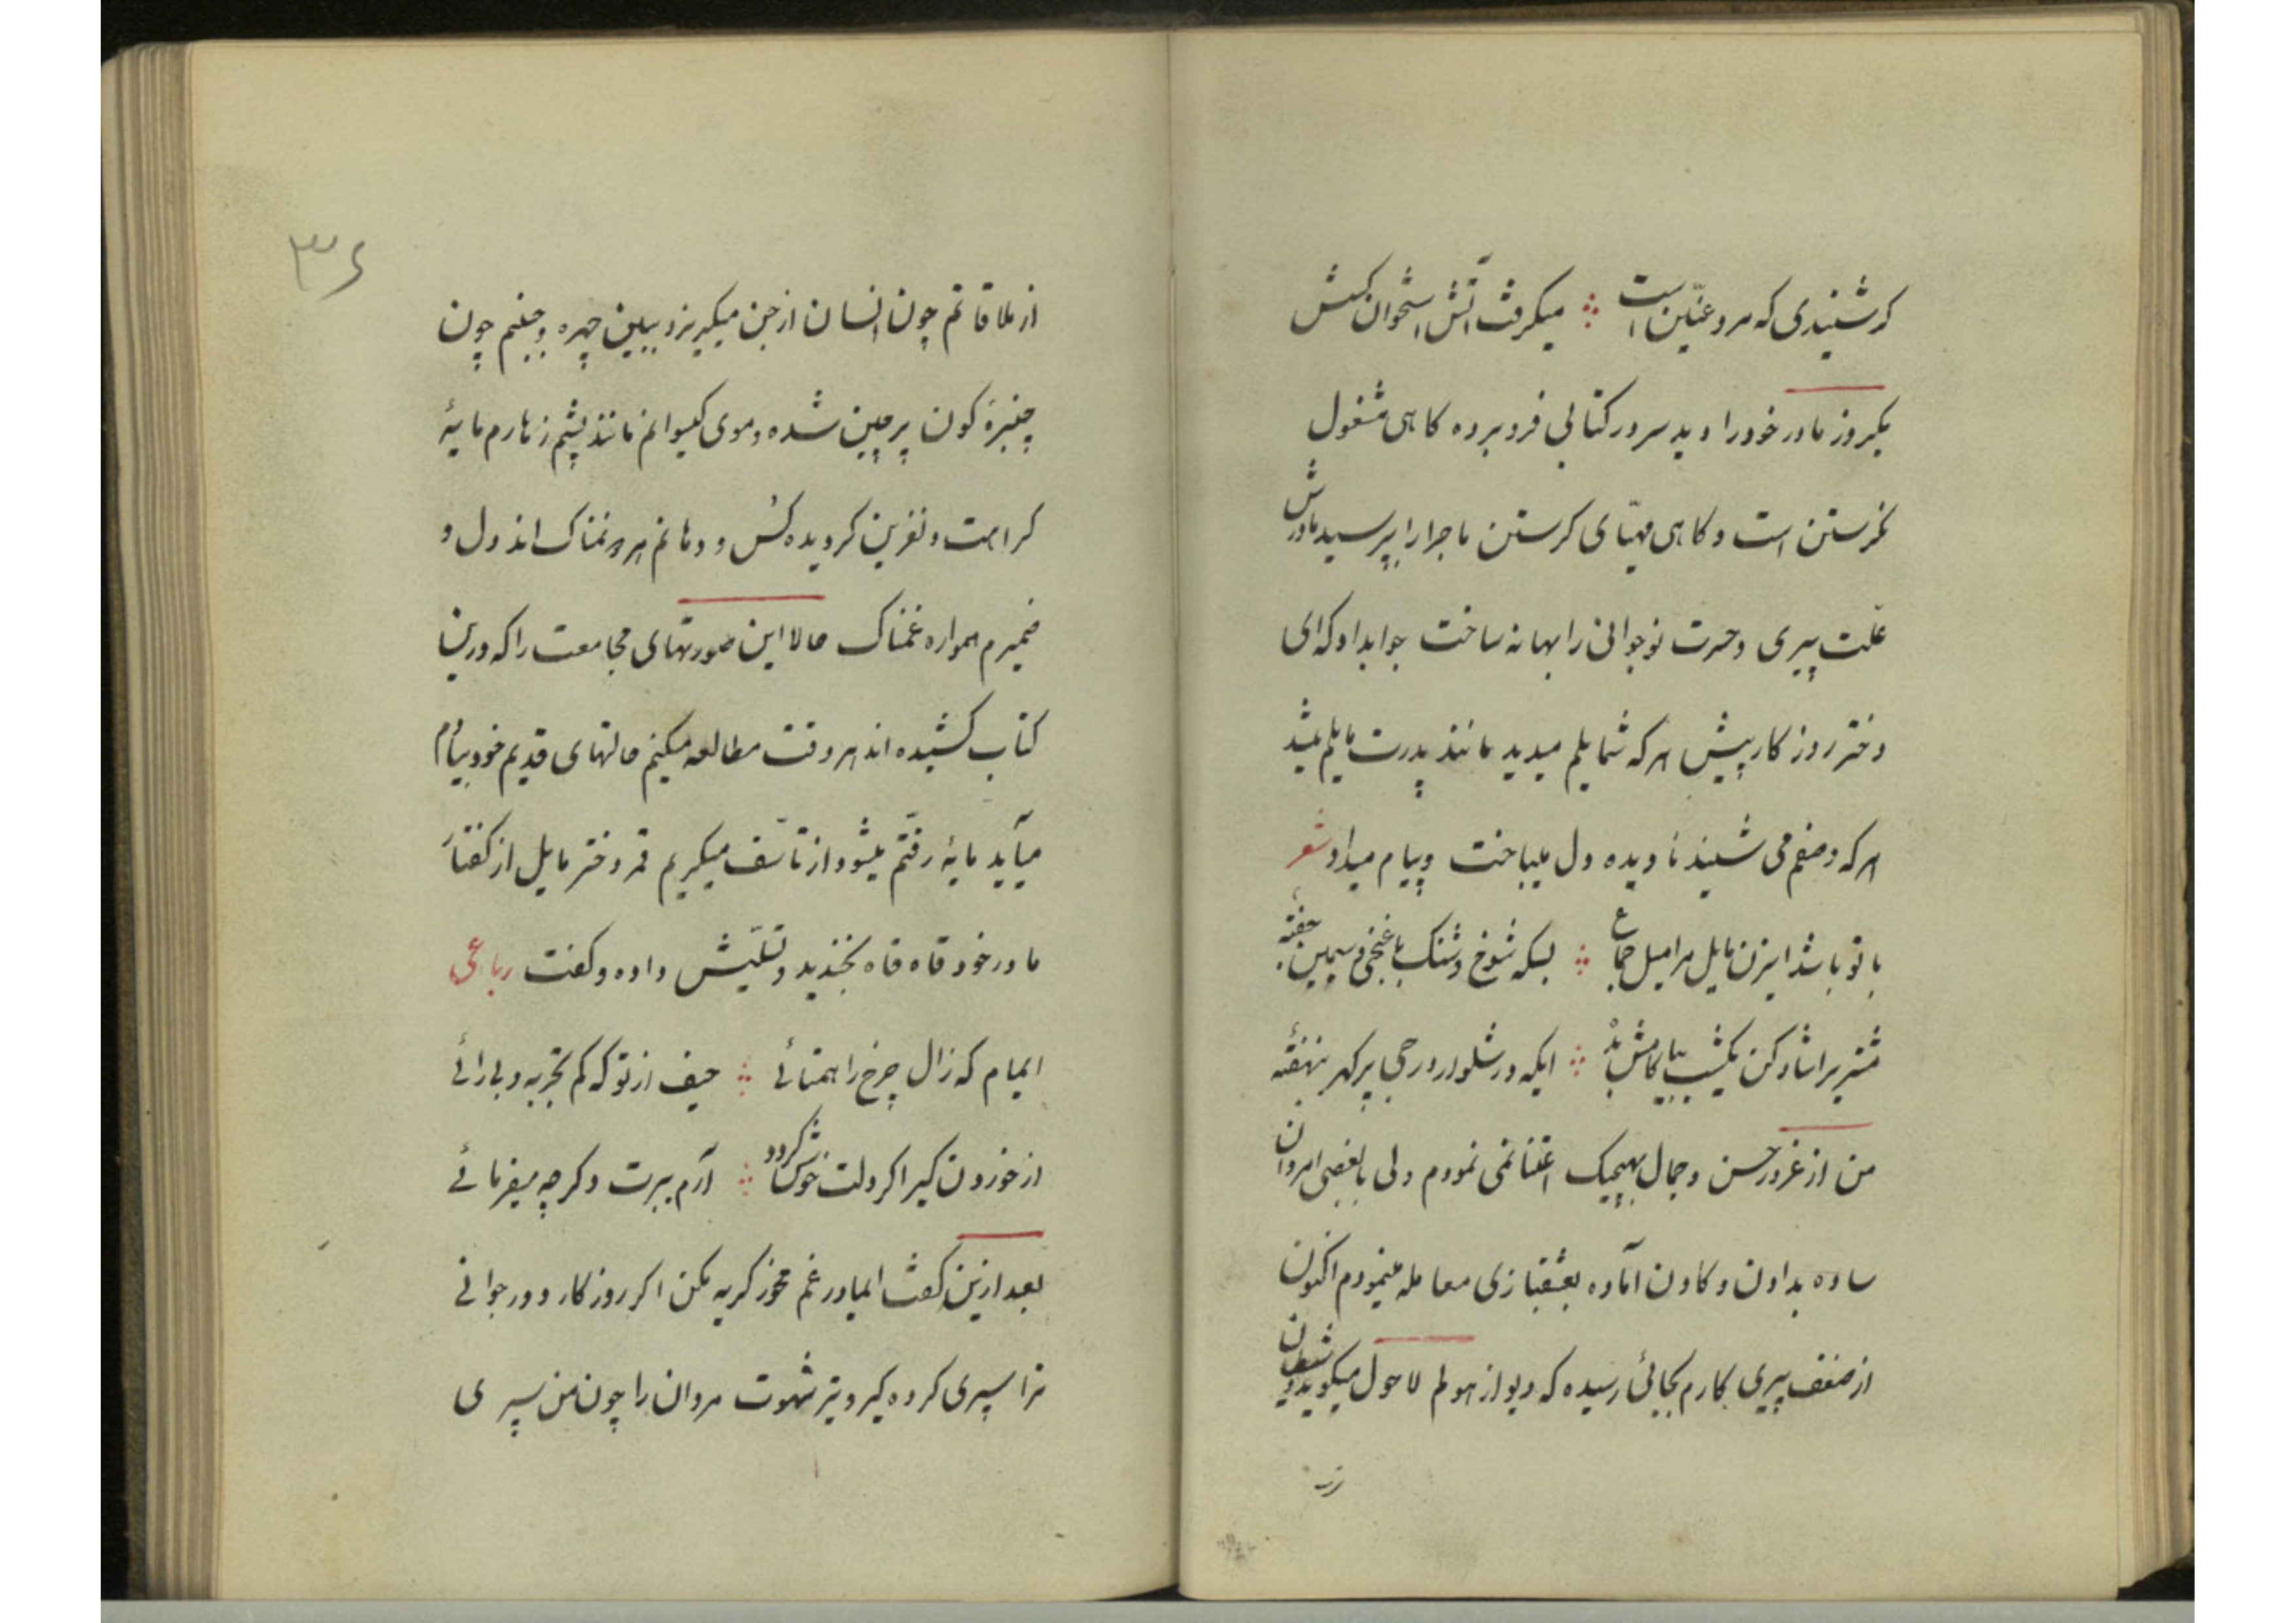 که شنیدی که مرد عنّین است ∴ میکرفت آتش استخوان کسش
یکروز مادر خود را دید سر در کتابی فرو برده کاهی مشغول
نکرستن است و کاهی مهیّای کرستن ماجرا را بپرسید مادرش
علّت پیری و حسرت نوجوانی را بهانه ساخت جواب داد که ای
دختر روزکار پیش هر که شمایلم میدید مانند پدرت مایلم میشد
هر که وصفم می شنید نادیده دل میباخت و پیام میداد شعر
با تو باشد اینزن مایل مرا میل جماع ∴ بسکه شوخ و شنک با غنجی و سیمین جفته
مشتریرا شاد کن یکشب بیا کامش بده ∴ ایکه در شلوار درجی پر کهر بنهفتهٔ
من از غرور حسن و جمال بهیچیک اعتنا نمی نمودم ولی با بعضی امردان
ساده بدادن و کادن آماده بعشقبازی معامله مینمودم اکنون
از ضعف پیری کارم بجائی رسیده که دیو از هولم لاحول میکوید و شیطان
از ملاقاتم چون انسان از جن میکریزد ببین چهره و جبینم چون
چنبرهٔ کون پر چین شده و موی کیسوانم مانند پشم زهارم مایهٔ
کراهت و نفرین کردیده کس و دهانم هر دو نمناک اند دل و
ضمیرم همواره غمناک حالا این صورتهای مجامعت را که درین
کتاب کشیده اند هر وقت مطالعه میکنم حالتهای قدیم خود بیادم
میآید مایهٔ رقّتم میشود از تأسّف میکریم قمر دختر مایل از کفتار
مادر خود قاه قاه بخندید و تسلّیش داده و کفت رباعی
ایمام که زال چرخ را همتائی ∴ حیف از تو که کم تجربه و بی رائی
از خوردن کیر اکر دلت خوش کردد ∴ آرم ببرت دکر چه میفرمائی
بعد ازین کفت ایمادر غم مخور کریه مکن اکر روزکار دور جوانی
ترا سپری کرده کیر و تیر شهوت مردان را چون من سپری